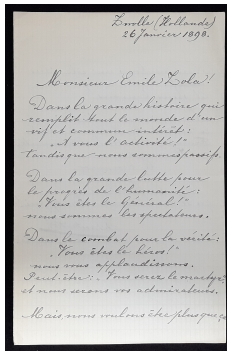 Zwolle (Hollande)
26 Janvier 1898.
Monsieur Emile Zola!
Dans la grande histoire qui
remplit tout le monde d'un
vif et commun intérêt:
"A vous l'activité!"
tandis que nous sommes passifs.
Dans la grande lutte pour
le progrès de l'humanité:
"Vous êtes le Général!"
nous sommes les spectateurs.
Dans le combat pour la vérité:
"Vous êtes le héros!"
nous vous applaudissons.
Peut-être: "Vous serez le martyr"
et nous serons vos admirateurs.
Mais nous voulons être plus que ça